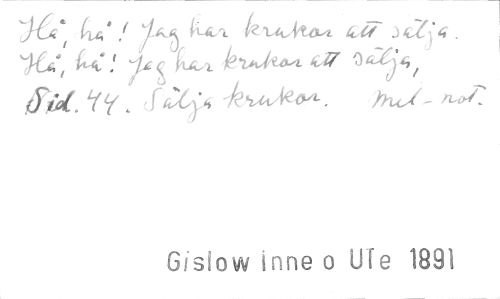 Hå, hå! Jag har krukor att sälja.
Hå, hå! Jag har krukor att sälja,
Sid. 44. Sälja krukor. Mel-not.
Gislow Inne o UTe 1891